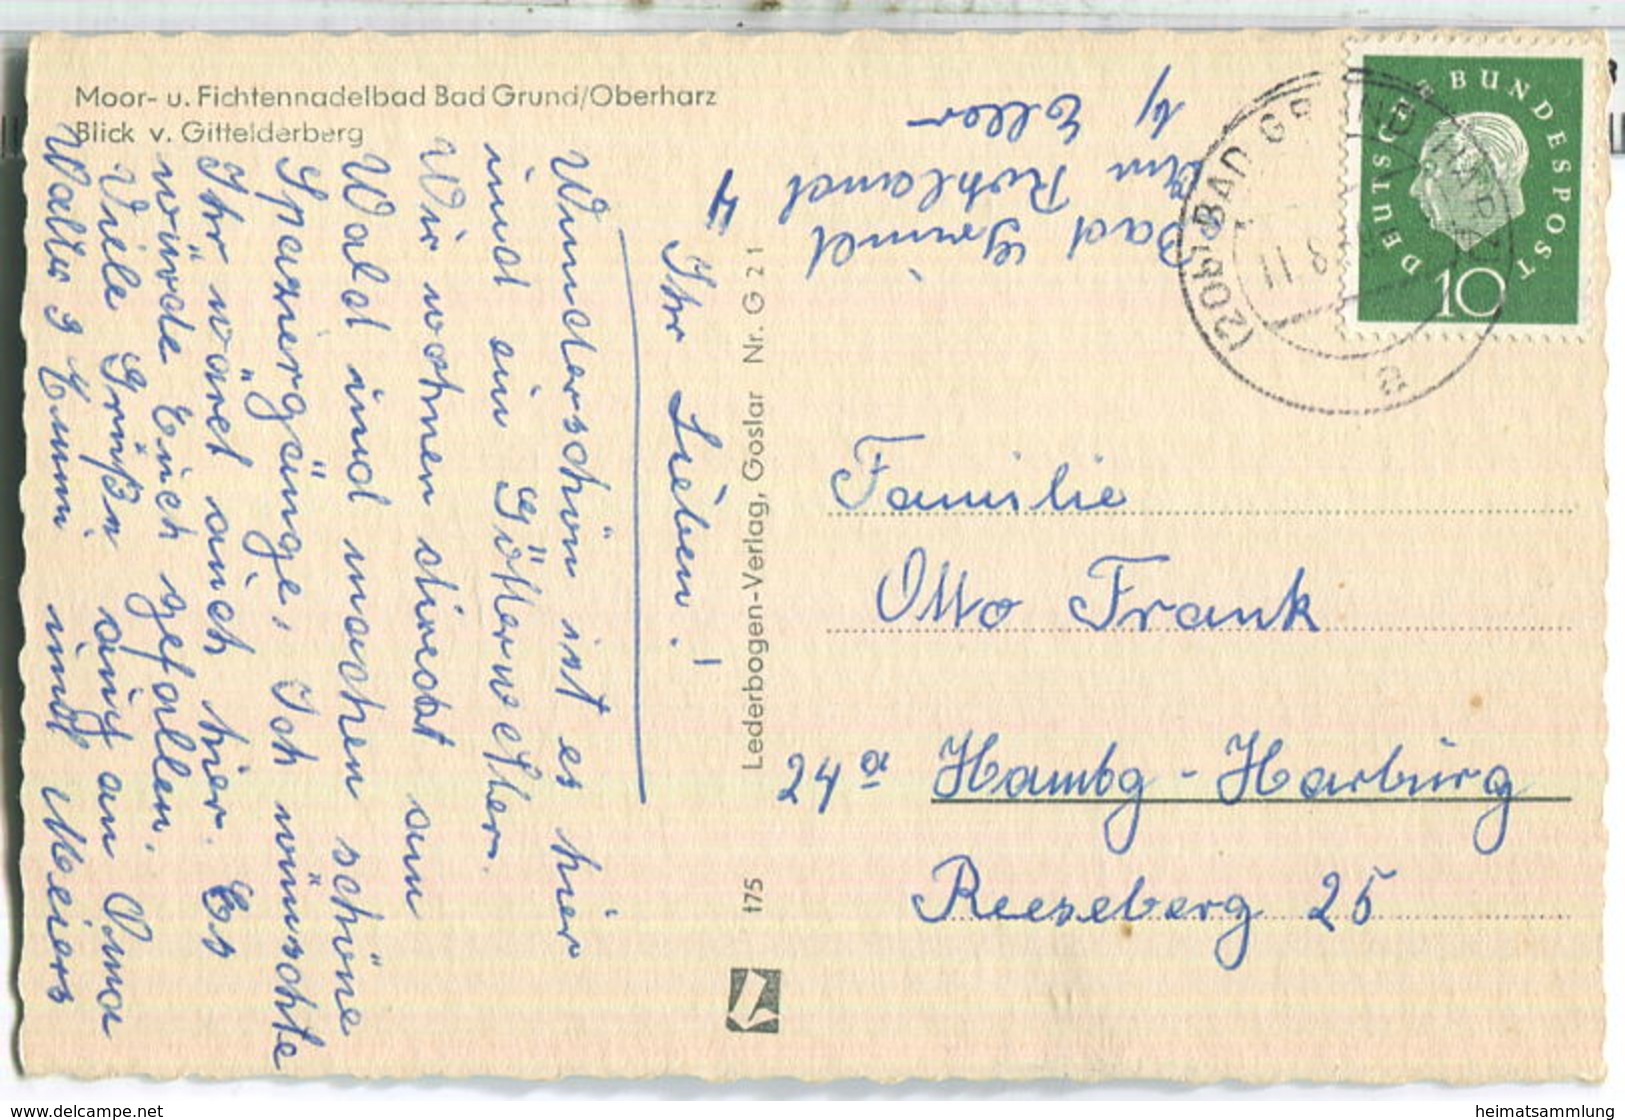 Moor- u. Fichtennadelbad Bad Grund/Oberharz
Blick v. Gittelderberg
Bad Grund
Am Roland
b/ Eller
4
Ihr Lieben!
Wunderschön ist es hier
und ein Götterwetter.
Wir wohnen direckt am
Wald und machen schöne
Spaziergänge, Ich wünschte
Ihr wäret auch hier. Es
würde Euch gefallen.
Viele Grüße auch an Oma
Walter u Emmi und Meiers
175 Lederbogen-Verlag, Goslar Nr. G 21
(20b) BAD GRUND HARZ
11.8
a
DEUTSCHE BUNDESPOST
10
Familie
Otto Frank
24a Hambg-Harburg
Reeseberg 25
heimatsammlung
www.delcampe.net